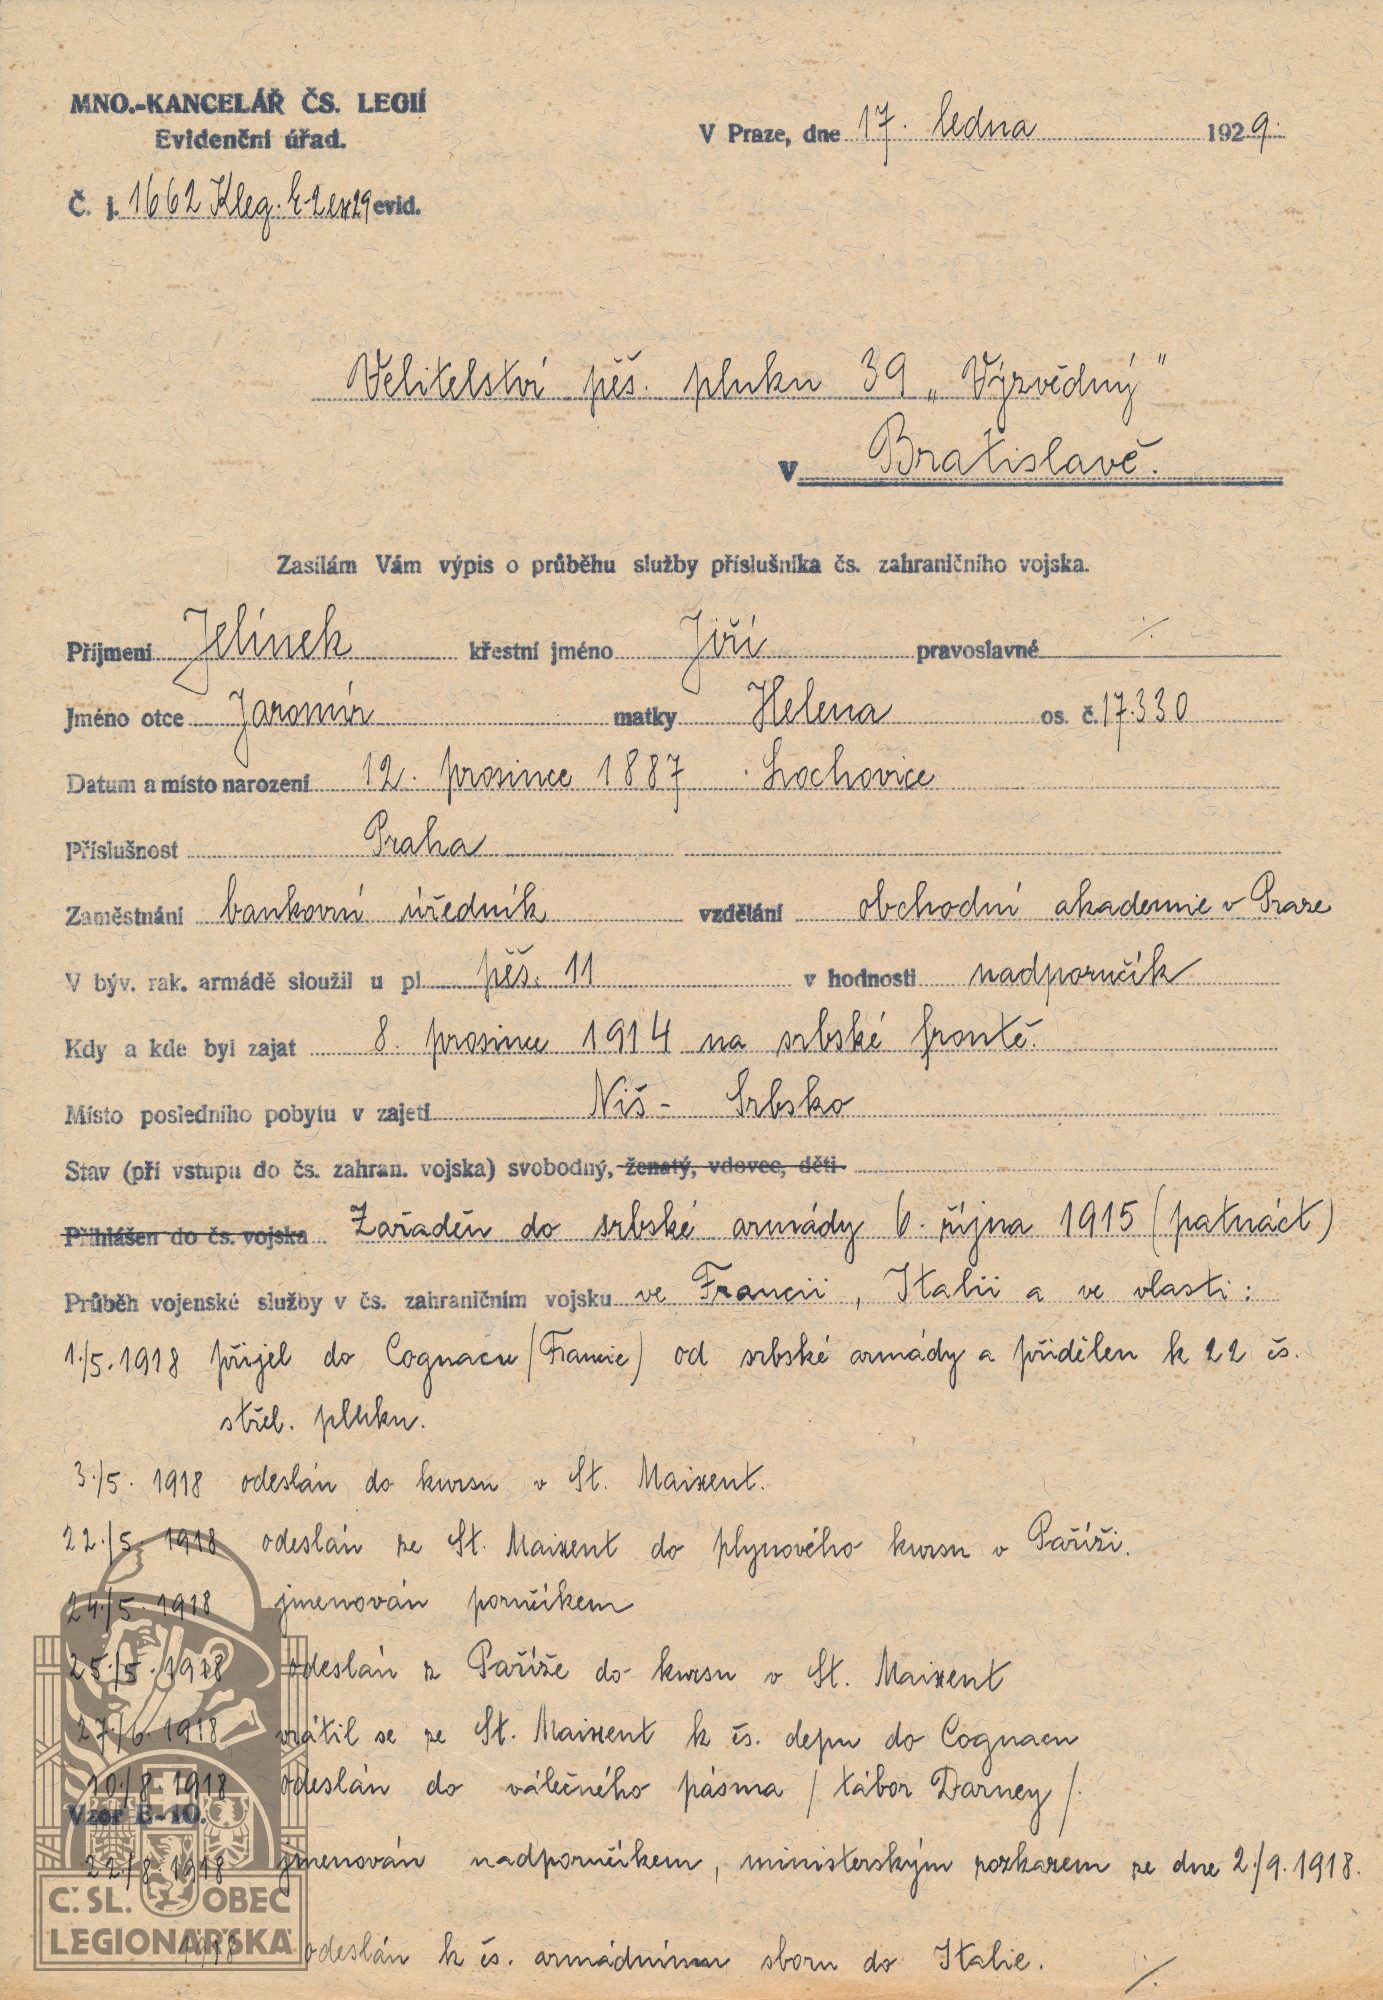 MNO.-KANCELÁŘ ČS. LEGIÍ
Evidenční úřad.
V Praze, dne 17. ledna 1929.
Č. j. 1662 Kleg. E-2 ex 29 evid.
Velitelství pěš. pluku 39 „Výzvědný"
v Bratislavě.
Zasílám Vám výpis o průběhu služby příslušníka čs. zahraničního vojska.
Příjmení Jelínek křestní jméno Jiří pravoslavné ·/·
Jméno otce Jaromír matky Helena os. č. 17.330
Datum a místo narození 12. prosince 1887 Lochovice
Příslušnost Praha
Zaměstnání bankovní úředník vzdělání obchodní akademie v Praze
V býv. rak. armádě sloužil u pl pěš. 11 v hodnosti nadporučík
Kdy a kde byl zajat 8. prosince 1914 na srbské frontě.
Místo posledního pobytu v zajetí Niš - Srbsko
Stav (při vstupu do čs. zahran. vojska) svobodný, ženatý, vdovec, děti
Přihlášen do čs. vojska Zařaděn do srbské armády 6. října 1915 (patnáct)
Průběh vojenské služby v čs. zahraničním vojsku ve Francii, Italii a ve vlasti:
1./5. 1918 přijel do Cognacu (Francie) od srbské armády a přidělen k 22 čs.
střel. pluku.
3./5. 1918 odeslán do kursu v St. Maixent.
22./5. 1918 odeslán ze St. Maixent do plynového kursu v Paříži.
24./5. 1918 jmenován poručíkem
25./5. 1918 odeslán z Paříže do kursu v St. Maixent
27./6. 1918 vrátil se ze St. Maixent k čs. depu do Cognacu
10./8. 1918 odeslán do válečného pásma / tábor Darney /.
Vzor E-10.
22./8. 1918 jmenován nadporučíkem, ministerským rozkazem ze dne 2./9. 1918.
1918 odeslán k čs. armádnímu sboru do Italie. ·/·
Č. SL. OBEC
LEGIONÁŘSKÁ